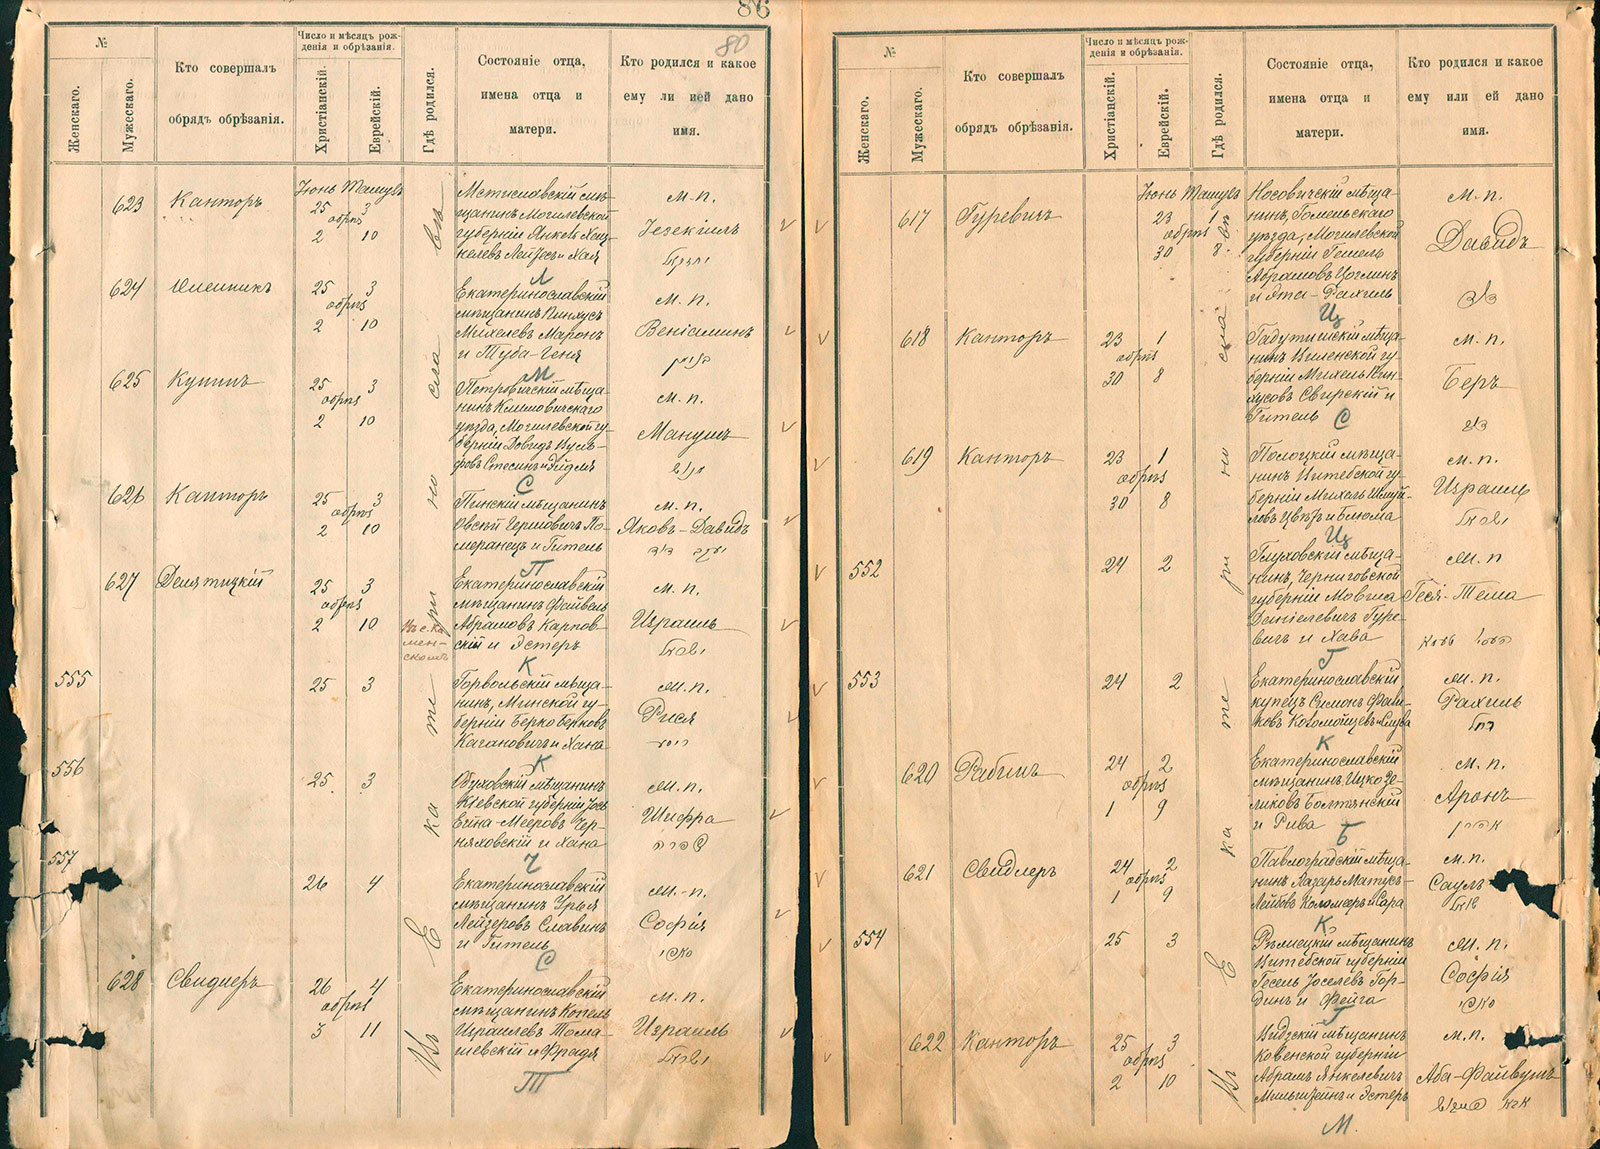 86
80
№
Женскаго.
Мужескаго.
Кто совершалъ
обрядъ обрѣзанія.
Число и мѣсяцъ рож-
денія и обрѣзанія.
Христіанскій.
Еврейскій.
Гдѣ родился.
Состояніе отца,
имена отца и
матери.
Кто родился и какое
ему ли ией дано
имя.
623
Канторъ
Іюнь Тамузъ
25 3
обрѣз
2 10
Мстиславскій мѣ-
щанинъ Могилевской
губерніи Янкель Хац-
келевъ Лейзесъ и Хая
Л
м. п.
Іезекіиль
יחזקאל
624
25 3
обрѣз
2 10
Екатеринославскій
мѣщанинъ Пинхусъ
Михелевъ Маронъ
и Туба-Геня
М
м. п.
Веніаминъ
בנימין
625
Купинъ
25 3
обрѣз
2 10
Петровичскій мѣща-
нинъ Климовичскаго
уѣзда, Могилевской гу-
берніи Довидъ
С
м. п.
Манушъ
626
Канторъ
25 3
обрѣз
2 10
Пинскій мѣщанинъ
Овсѣй Гершовичъ По-
меранецъ и Гитель
П
м. п.
Яковъ-Давидъ
יעקב דוד
627
Делятицкій
25 3
обрѣз
2 10
Въ с. Ка
мен-
скомъ
Екатеринославскій
мѣщанинъ Файвель
Абрамовъ Карпов-
скій и Эстеръ
К
м. п.
Израиль
ישראל
555
25 3
Горвольскій мѣща-
нинъ, Минской гу-
берніи Берко Берковъ
Кагановичъ и Хана
К
м. п.
Рися
556
25 3
Обуховскій мѣщанинъ
Кіевской губерніи
Ейна-Мееровъ Чер-
няховскій и Хана
Ч
м. п.
Шифра
שפרה
557
26 4
Екатеринославскій
мѣщанинъ Урья
Лейзеровъ Славинъ
и Гитель
С
м. п.
Софія
סאפי
628
Свидлеръ
26 4
обрѣз
3 11
Екатеринославскій
мѣщанинъ Копель
Израилевъ Тома-
шевскій и Фрадя
Т
м. п.
Израиль
ישראל
Въ Екатеринославѣ
№
Женскаго.
Мужескаго.
Кто совершалъ
обрядъ обрѣзанія.
Число и мѣсяцъ рож-
денія и обрѣзанія.
Христіанскій.
Еврейскій.
Гдѣ родился.
Состояніе отца,
имена отца и
матери.
Кто родился и какое
ему или ей дано
имя.
617
Гуревичъ
Іюнь Тамузъ
23 1
обрѣз
30 8
Носовичскій мѣща-
нинъ, Гомельскаго
уѣзда, Могилевской
губерніи Гешель
Абрамовъ Цоглинъ
и Эта-Рахиль
Ц
м. п.
Давидъ
דוד
618
Канторъ
23 1
обрѣз
30 8
Гадутишскій мѣща-
нинъ Виленской гу-
берніи Михель Пин-
хусовъ Свирскій и
Гитель
С
м. п.
Беръ
בער
619
Канторъ
23 1
обрѣз
30 8
Полоцкій мѣща-
нинъ Витебской гу-
берніи Михель Шмуй-
ловъ и Блюма
Ц
м. п.
Израиль
ישראל
552
24 2
Глуховскій мѣща-
нинъ, Черниговской
губерніи Мовша
Гуре-
вичъ и Хава
Г
м. п
Геся-Тема
553
24 2
Екатеринославскій
купецъ Симонъ Фай-
К
м. п.
Рахиль
רחל
620
Рабинъ
24 2
обрѣз
1 9
Екатеринославскій
мѣщанинъ Ицко Зе-
ликовъ Болтянскій
и Рива
Б
м. п.
Аронъ
אהרן
621
Свидлеръ
24 2
обрѣз
1 9
Павлоградскій мѣща-
нинъ Лазарь Матусъ-
Лейбовъ Коломееръ и Сара
К
м. п.
Саулъ
שאול
554
25 3
Рѣжицкій мѣщанинъ
Витебской губерніи
Гесель Іоселевъ Гор-
динъ и Фейга
Г
м. п.
Софія
סאפי
622
Канторъ
25 3
обрѣз
2 10
Видзскій мѣщанинъ
Ковенской губерніи
Абрамъ Янкелевичъ
и Эстеръ
М.
м. п.
Аба-Файвушъ
אבא פייוויש
Въ Екатеринославѣ